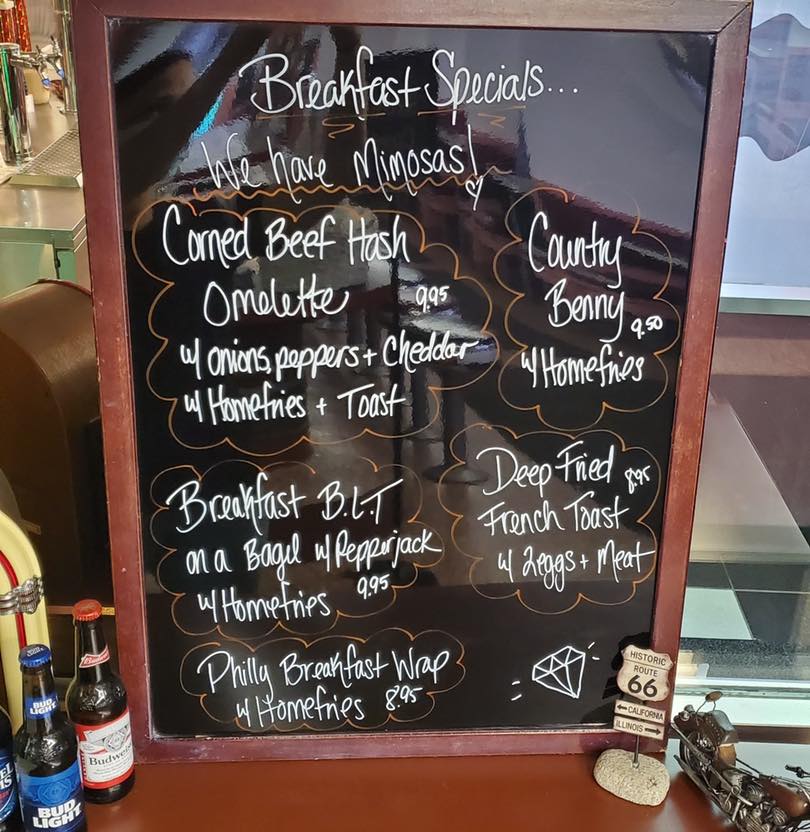 Breakfast Specials...
We have Mimosas!
Corned Beef Hash
Omelette 9.95
w/ onions, peppers + Cheddar
w/ Homefries + Toast
Country
Benny 9.50
w/ Homefries
Breakfast B.L.T
on a Bagel w/ Pepperjack
w/ Homefries 9.95
Deep Fried 8.95
French Toast
w/ 2 eggs + Meat
Philly Breakfast Wrap
w/ Homefries 8.95
HISTORIC
ROUTE
66
CALIFORNIA
ILLINOIS
Budweiser
BUD
LIGHT
Budweiser
BUD
LIGHT